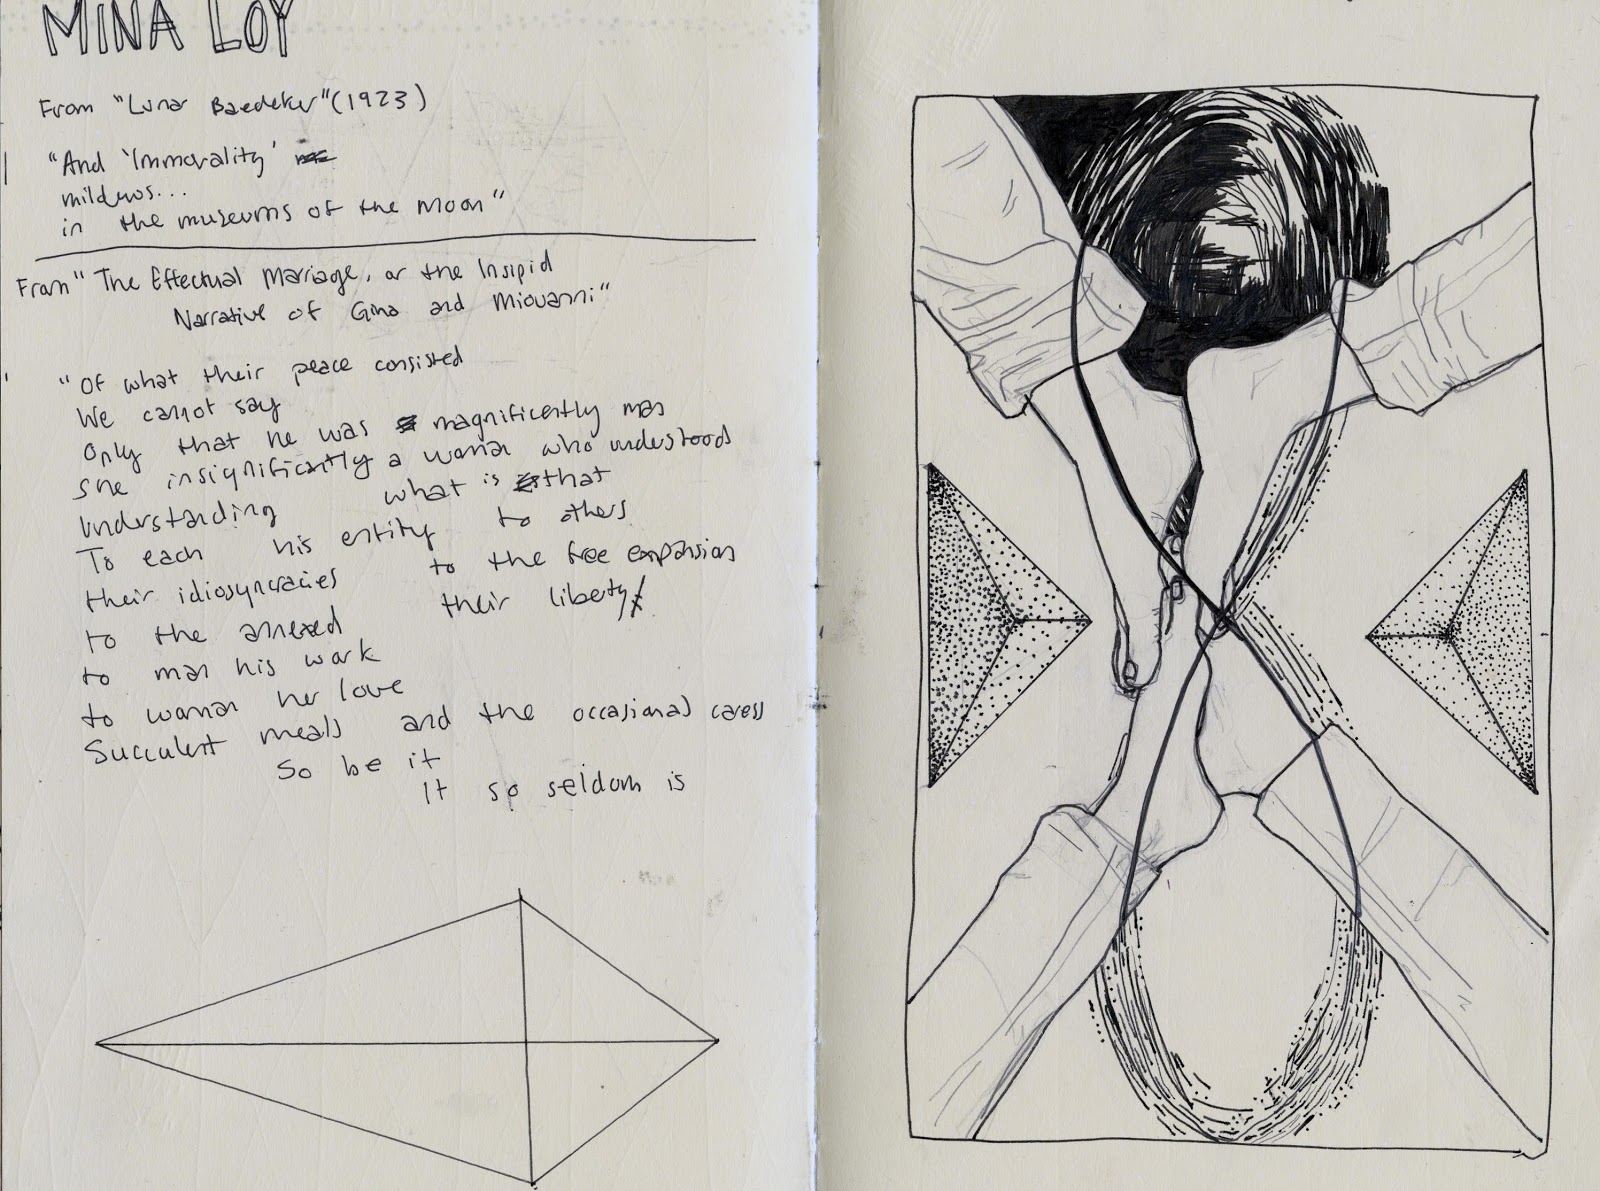 MINA LOY
From "Lunar Baedeker" (1923)
"And 'Immorality'
mildews...
in the museums of the Moon"
From "The Effectual Mariage, or the Insipid
Narrative of Gina and Miovanni"
"Of what their peace consisted
We cannot say
Only that he was magnificently man
She insignificantly a woman who understood
Understanding what is that
To each his entity to others
their idiosyncracies to the free expansion
to the annexed their liberty
to man his work
to woman her love
Succulent meals and the occasional caress
So be it
It so seldom is